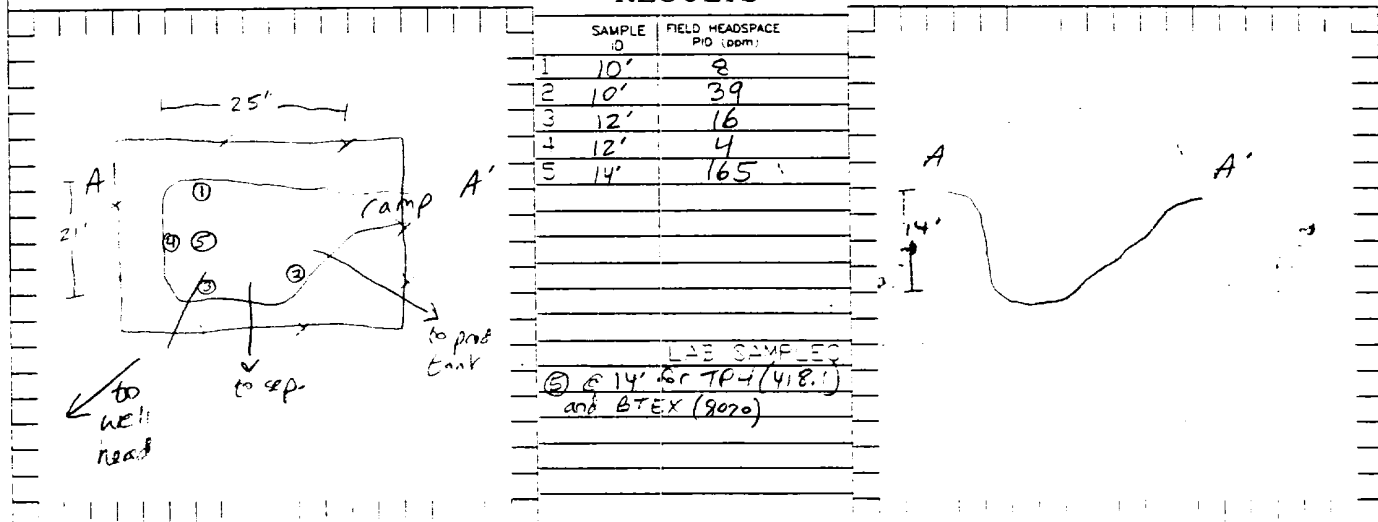 25'
A
A'
①
ramp
21'
④ ⑤
②
③
to prod
tank
to sep.
to
well
head
RESULTS
SAMPLE ID FIELD HEADSPACE PID (ppm)
1 10' 8
2 10' 39
3 12' 16
4 12' 4
5 14' 165
LAB SAMPLES
⑤ @ 14' for TPH (418.1)
and BTEX (8020)
A
A'
14'